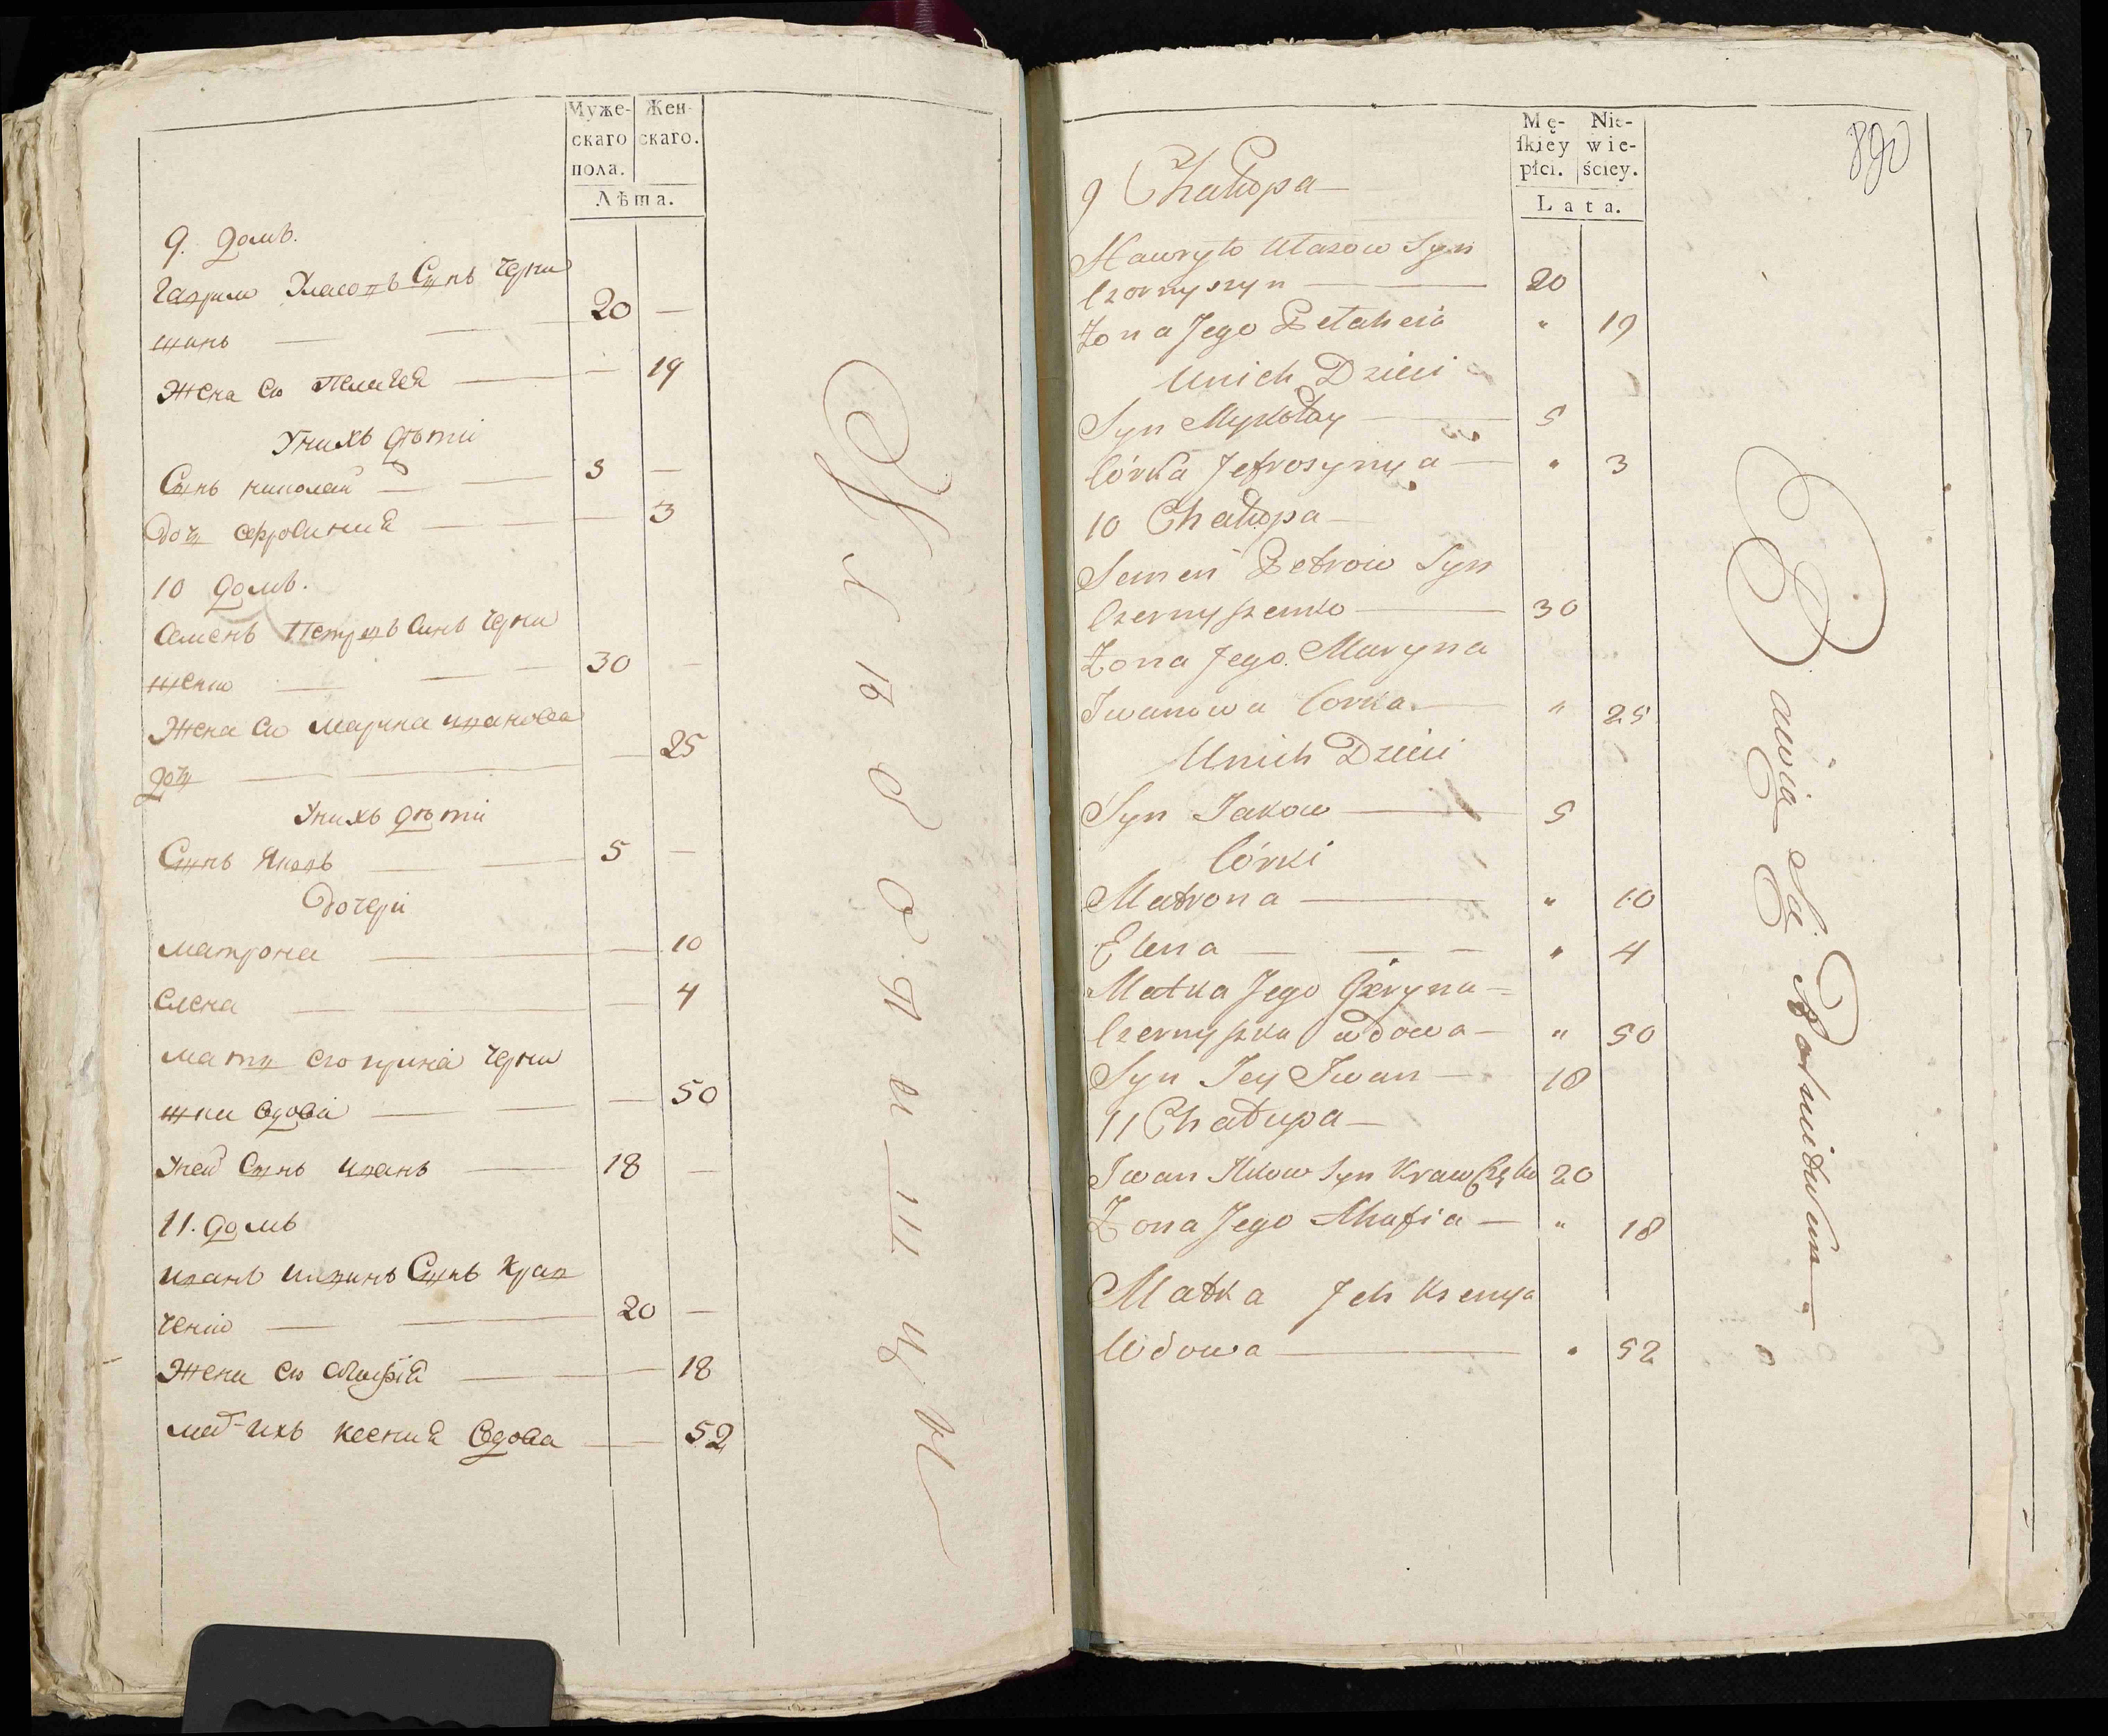 Муже-
скаго
пола.
Жен-
скаго.
Лѣта.
9. домъ.
Гаврило Власовъ Сынъ Черни
шинъ — — 20 —
Жена ево Пелагея — — 19
У нихъ дѣти
Сынъ николай — — 5 —
Дочь ефросиния — — 3
10 домъ.
Семенъ Петровъ Синъ Черни
шенко — — 30 —
Жена ево Марина иванова
дочь — — 25
У нихъ дѣти
Сынъ Яковъ — — 5 —
Дочери
матрона — — 10
елена — — 4
мать его ирина Черни
шка вдова — — 50
У ней Сынъ иванъ — 18 —
11. домъ
иванъ Сынъ Крав
ченко — — 20 —
Жена ево — — 18
мать ихъ ксения вдова — 52
Mę-
skiey
płci.
Nie-
wie-
ściey.
Lata.
890
9 Chałupa —
Hawryło Własow Syn
Czornyszyn — — 20
Żona Jego Pelaheia " 19
Unich Dzieci
Syn Mykołay — 5
Córka Jefrosynya — " 3
10 Chałupa —
Semen Petrow Syn
Czernyszenko — 30
Żona Jego Maryna
Iwanowa Corka — " 25
Unich Dzieci
Syn Jakow — 5
Córki
Matrona — " 10
Elena — — — " 4
Matka Jego Iryna —
Czernyszka wdowa — " 50
Syn Jey Iwan — 18
11 Chałupa —
Iwan Ilkow Syn Krawczenko 20
Żona Jego — " 18
Matka Jch Ksenya
Wdowa — " 52